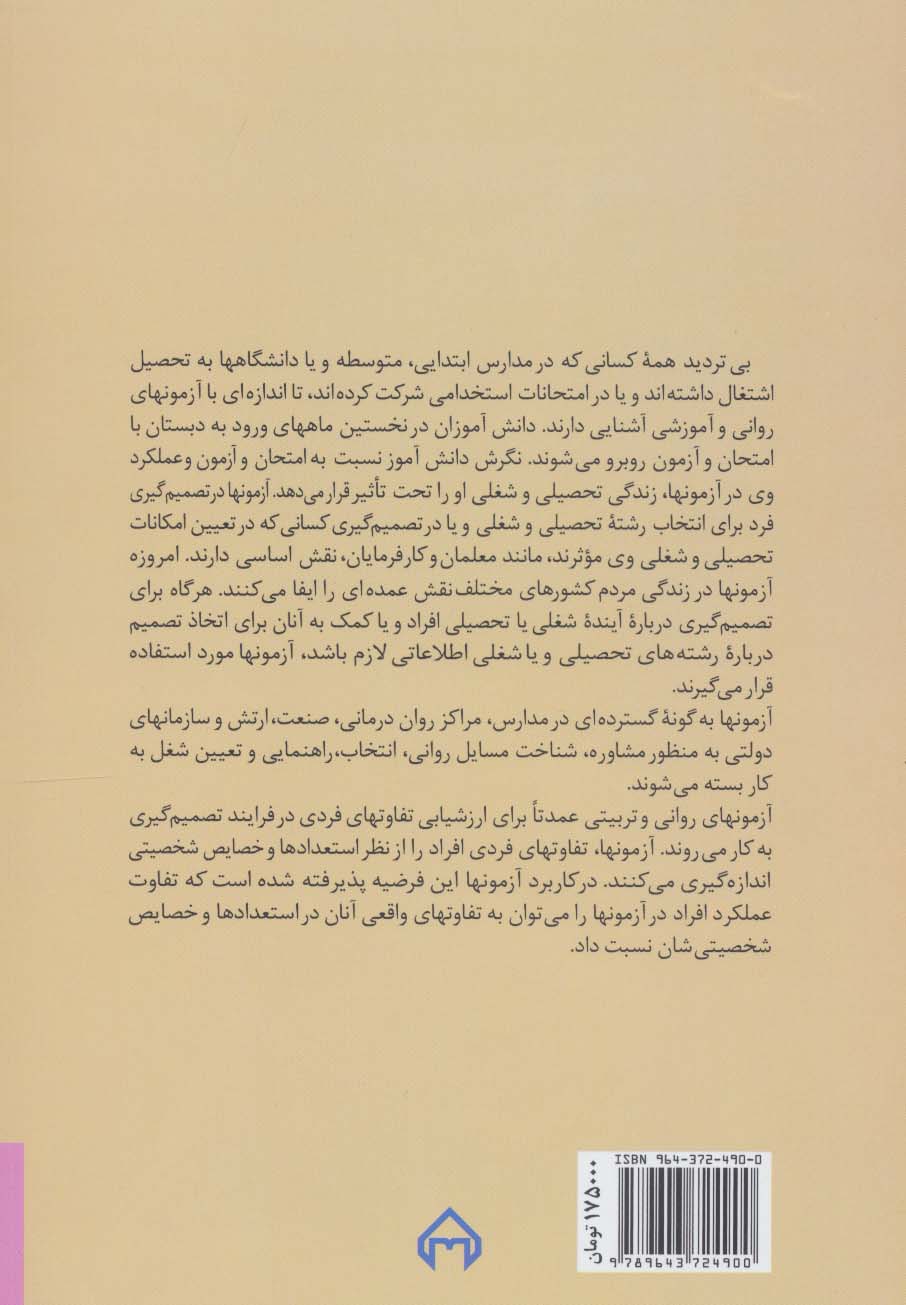 بی تردید همهٔ کسانی که در مدارس ابتدایی، متوسطه و یا دانشگاهها به تحصیل
اشتغال داشته‌اند و یا در امتحانات استخدامی شرکت کرده‌اند، تا اندازه‌ای با آزمونهای
روانی و آموزشی آشنایی دارند. دانش آموزان در نخستین ماههای ورود به دبستان با
امتحان و آزمون روبرو می‌شوند. نگرش دانش آموز نسبت به امتحان و آزمون و عملکرد
وی در آزمونها، زندگی تحصیلی و شغلی او را تحت تأثیر قرار می‌دهد. آزمونها در تصمیم‌گیری
فرد برای انتخاب رشتهٔ تحصیلی و شغلی و یا در تصمیم‌گیری کسانی که در تعیین امکانات
تحصیلی و شغلی وی مؤثرند، مانند معلمان و کارفرمایان، نقش اساسی دارند. امروزه
آزمونها در زندگی مردم کشورهای مختلف نقش عمده‌ای را ایفا می‌کنند. هرگاه برای
تصمیم‌گیری دربارهٔ آیندهٔ شغلی یا تحصیلی افراد و یا کمک به آنان برای اتخاذ تصمیم
دربارهٔ رشته‌های تحصیلی و یا شغلی اطلاعاتی لازم باشد، آزمونها مورد استفاده
قرار می‌گیرند.
آزمونها به گونهٔ گسترده‌ای در مدارس، مراکز روان درمانی، صنعت، ارتش و سازمانهای
دولتی به منظور مشاوره، شناخت مسایل روانی، انتخاب، راهنمایی و تعیین شغل به
کار بسته می‌شوند.
آزمونهای روانی و تربیتی عمدتاً برای ارزشیابی تفاوتهای فردی در فرایند تصمیم‌گیری
به کار می‌روند. آزمونها، تفاوتهای فردی افراد را از نظر استعدادها و خصایص شخصیتی
اندازه‌گیری می‌کنند. در کاربرد آزمونها این فرضیه پذیرفته شده است که تفاوت
عملکرد افراد در آزمونها را می‌توان به تفاوتهای واقعی آنان در استعدادها و خصایص
شخصیتی‌شان نسبت داد.
ISBN 964-372-490-0
9 789643 724900
۱۷۵۰۰۰ تومان